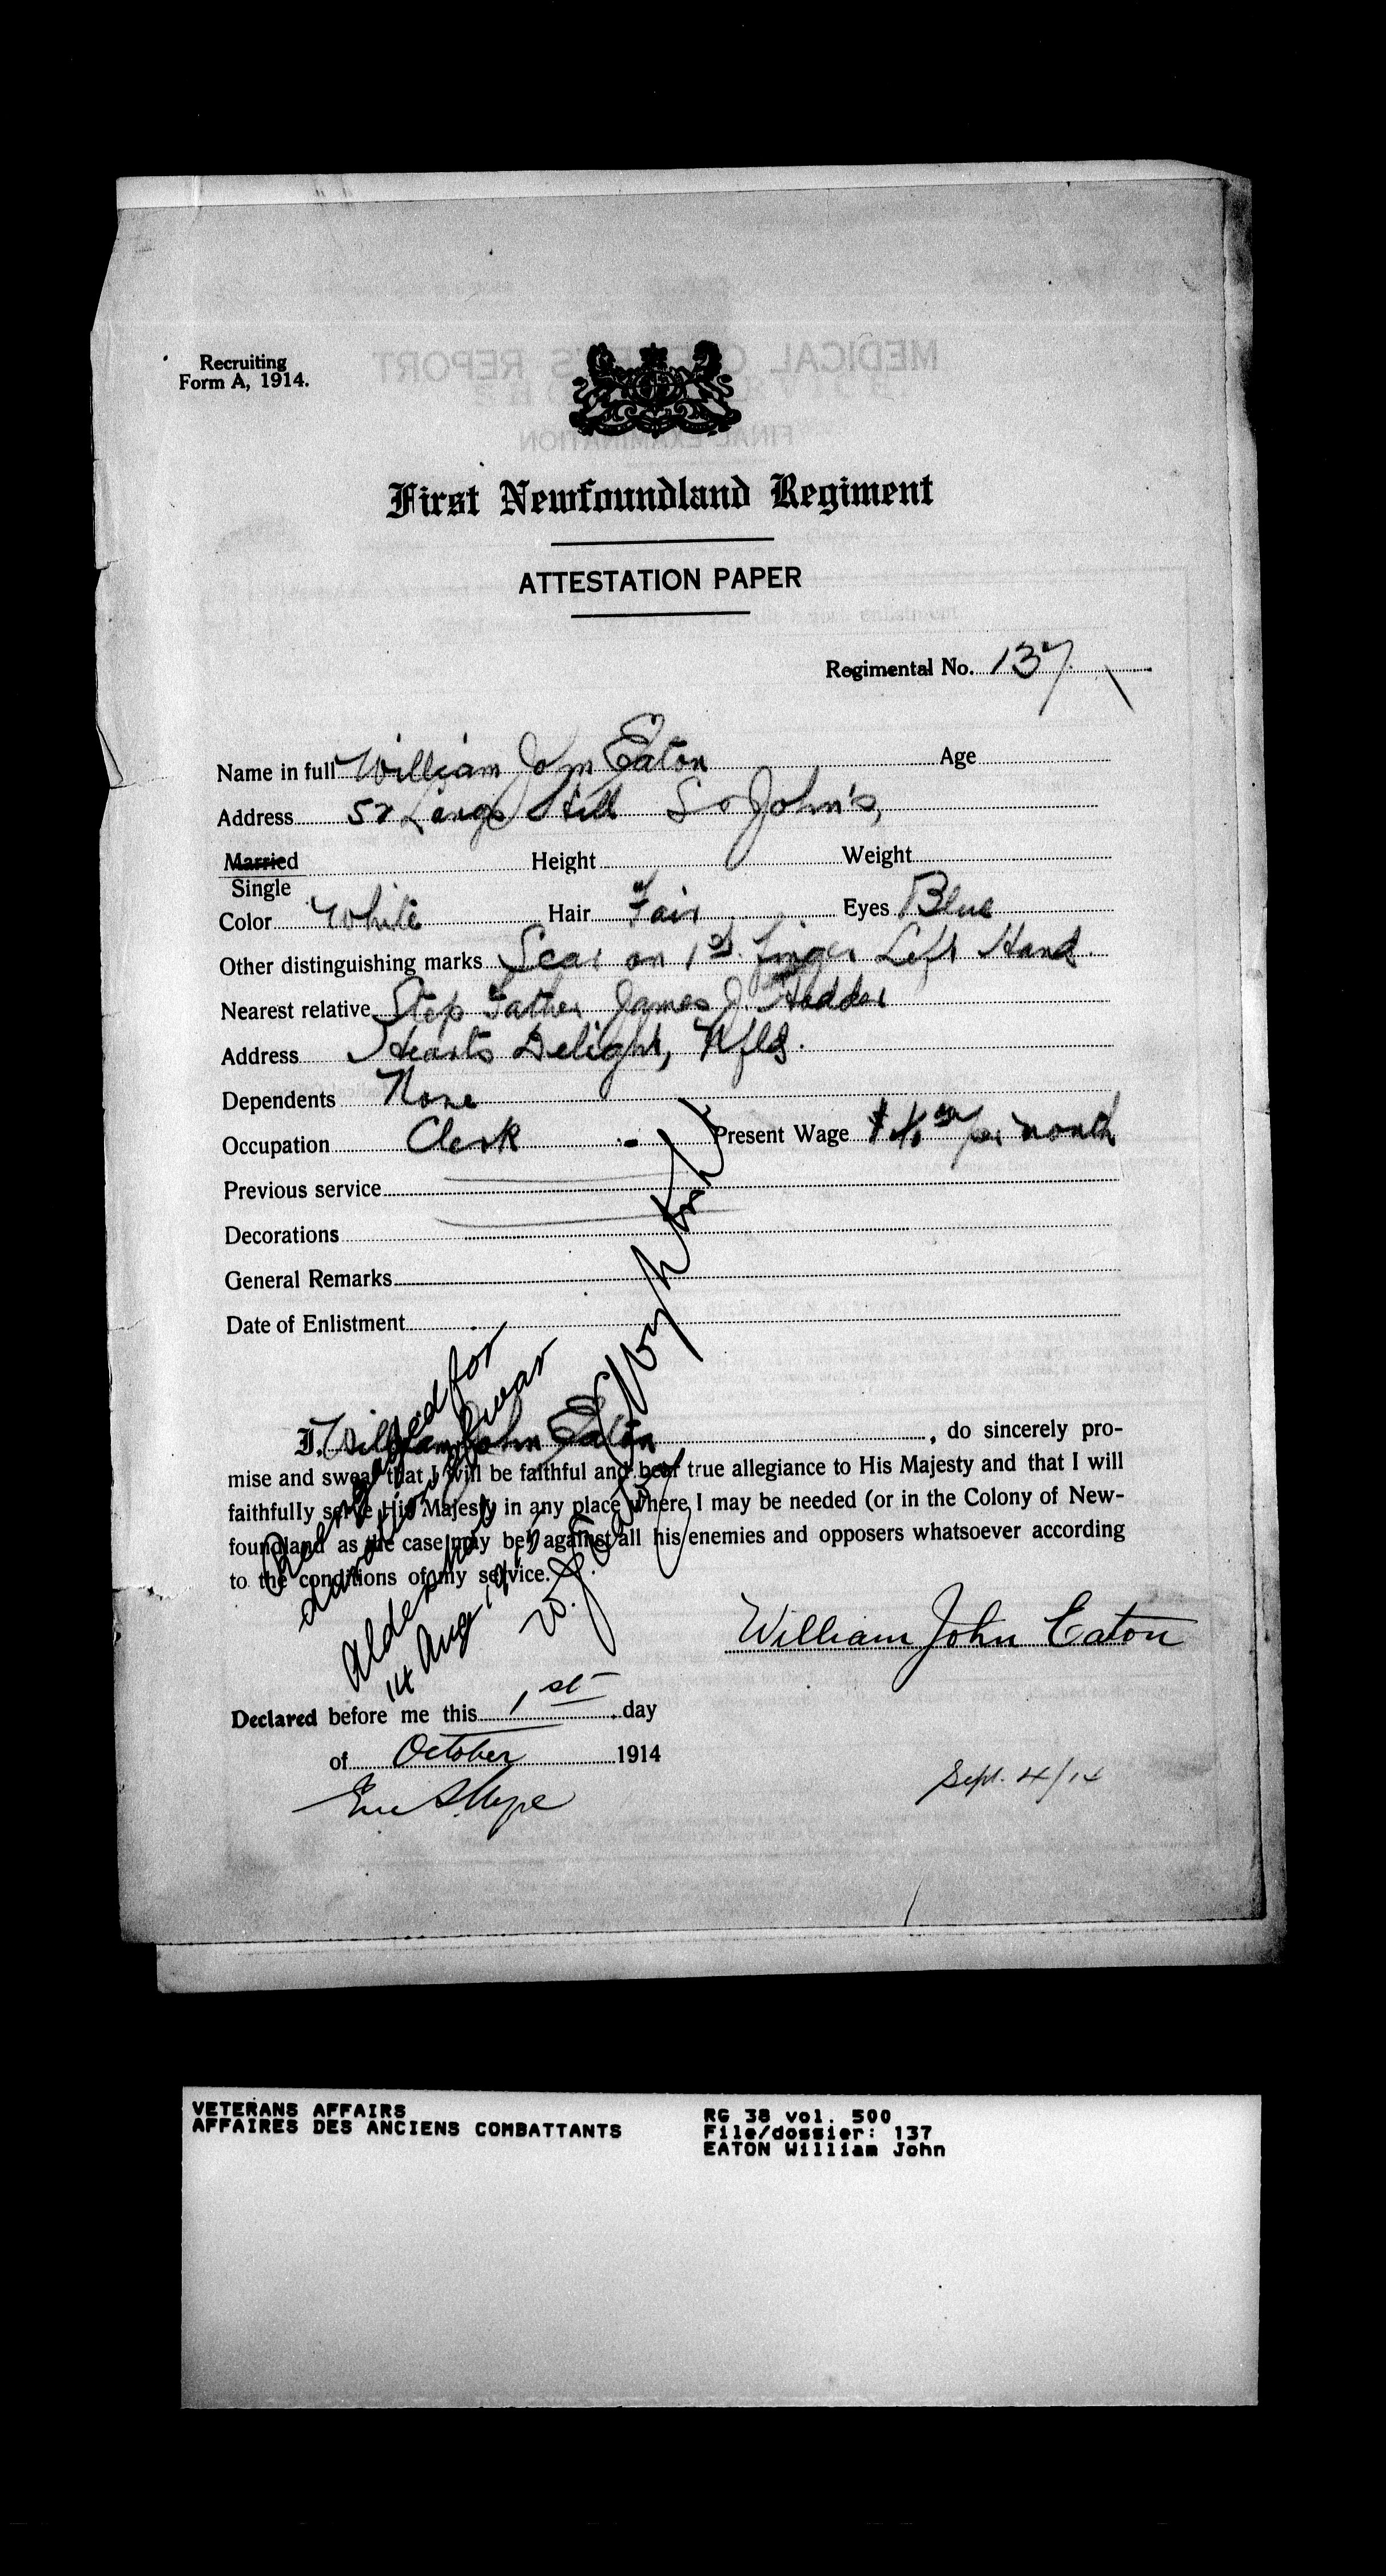 Recruiting
Form A, 1914.
First Newfoundland Regiment
ATTESTATION PAPER
Regimental No. 137
Name in full William John Eaton Age
Address 52 Hill St John's,
Married
Single
Height Weight
Color White Hair Fair Eyes Blue
Other distinguishing marks Scar on 1st finger Left Hand.
Nearest relative Step Father James J. Hedder
Address Hearts Delight, Nfld.
Dependents None
Occupation Clerk - Present Wage per month
Previous service
Decorations
General Remarks
Date of Enlistment
I, William John Eaton, do sincerely pro-
mise and swear that I will be faithful and bear true allegiance to His Majesty and that I will
faithfully serve His Majesty in any place where I may be needed (or in the Colony of New-
foundland as the case may be) against all his enemies and opposers whatsoever according
to the conditions of my service.
Reengaged for
duration of war
Aldershot
14 Aug 1915
W. J. Eaton
William John Eaton
Declared before me this 1st day
of October 1914
Sept. 4/14
VETERANS AFFAIRS
AFFAIRES DES ANCIENS COMBATTANTS
RG 38 vol. 500
File/dossier: 137
EATON William John